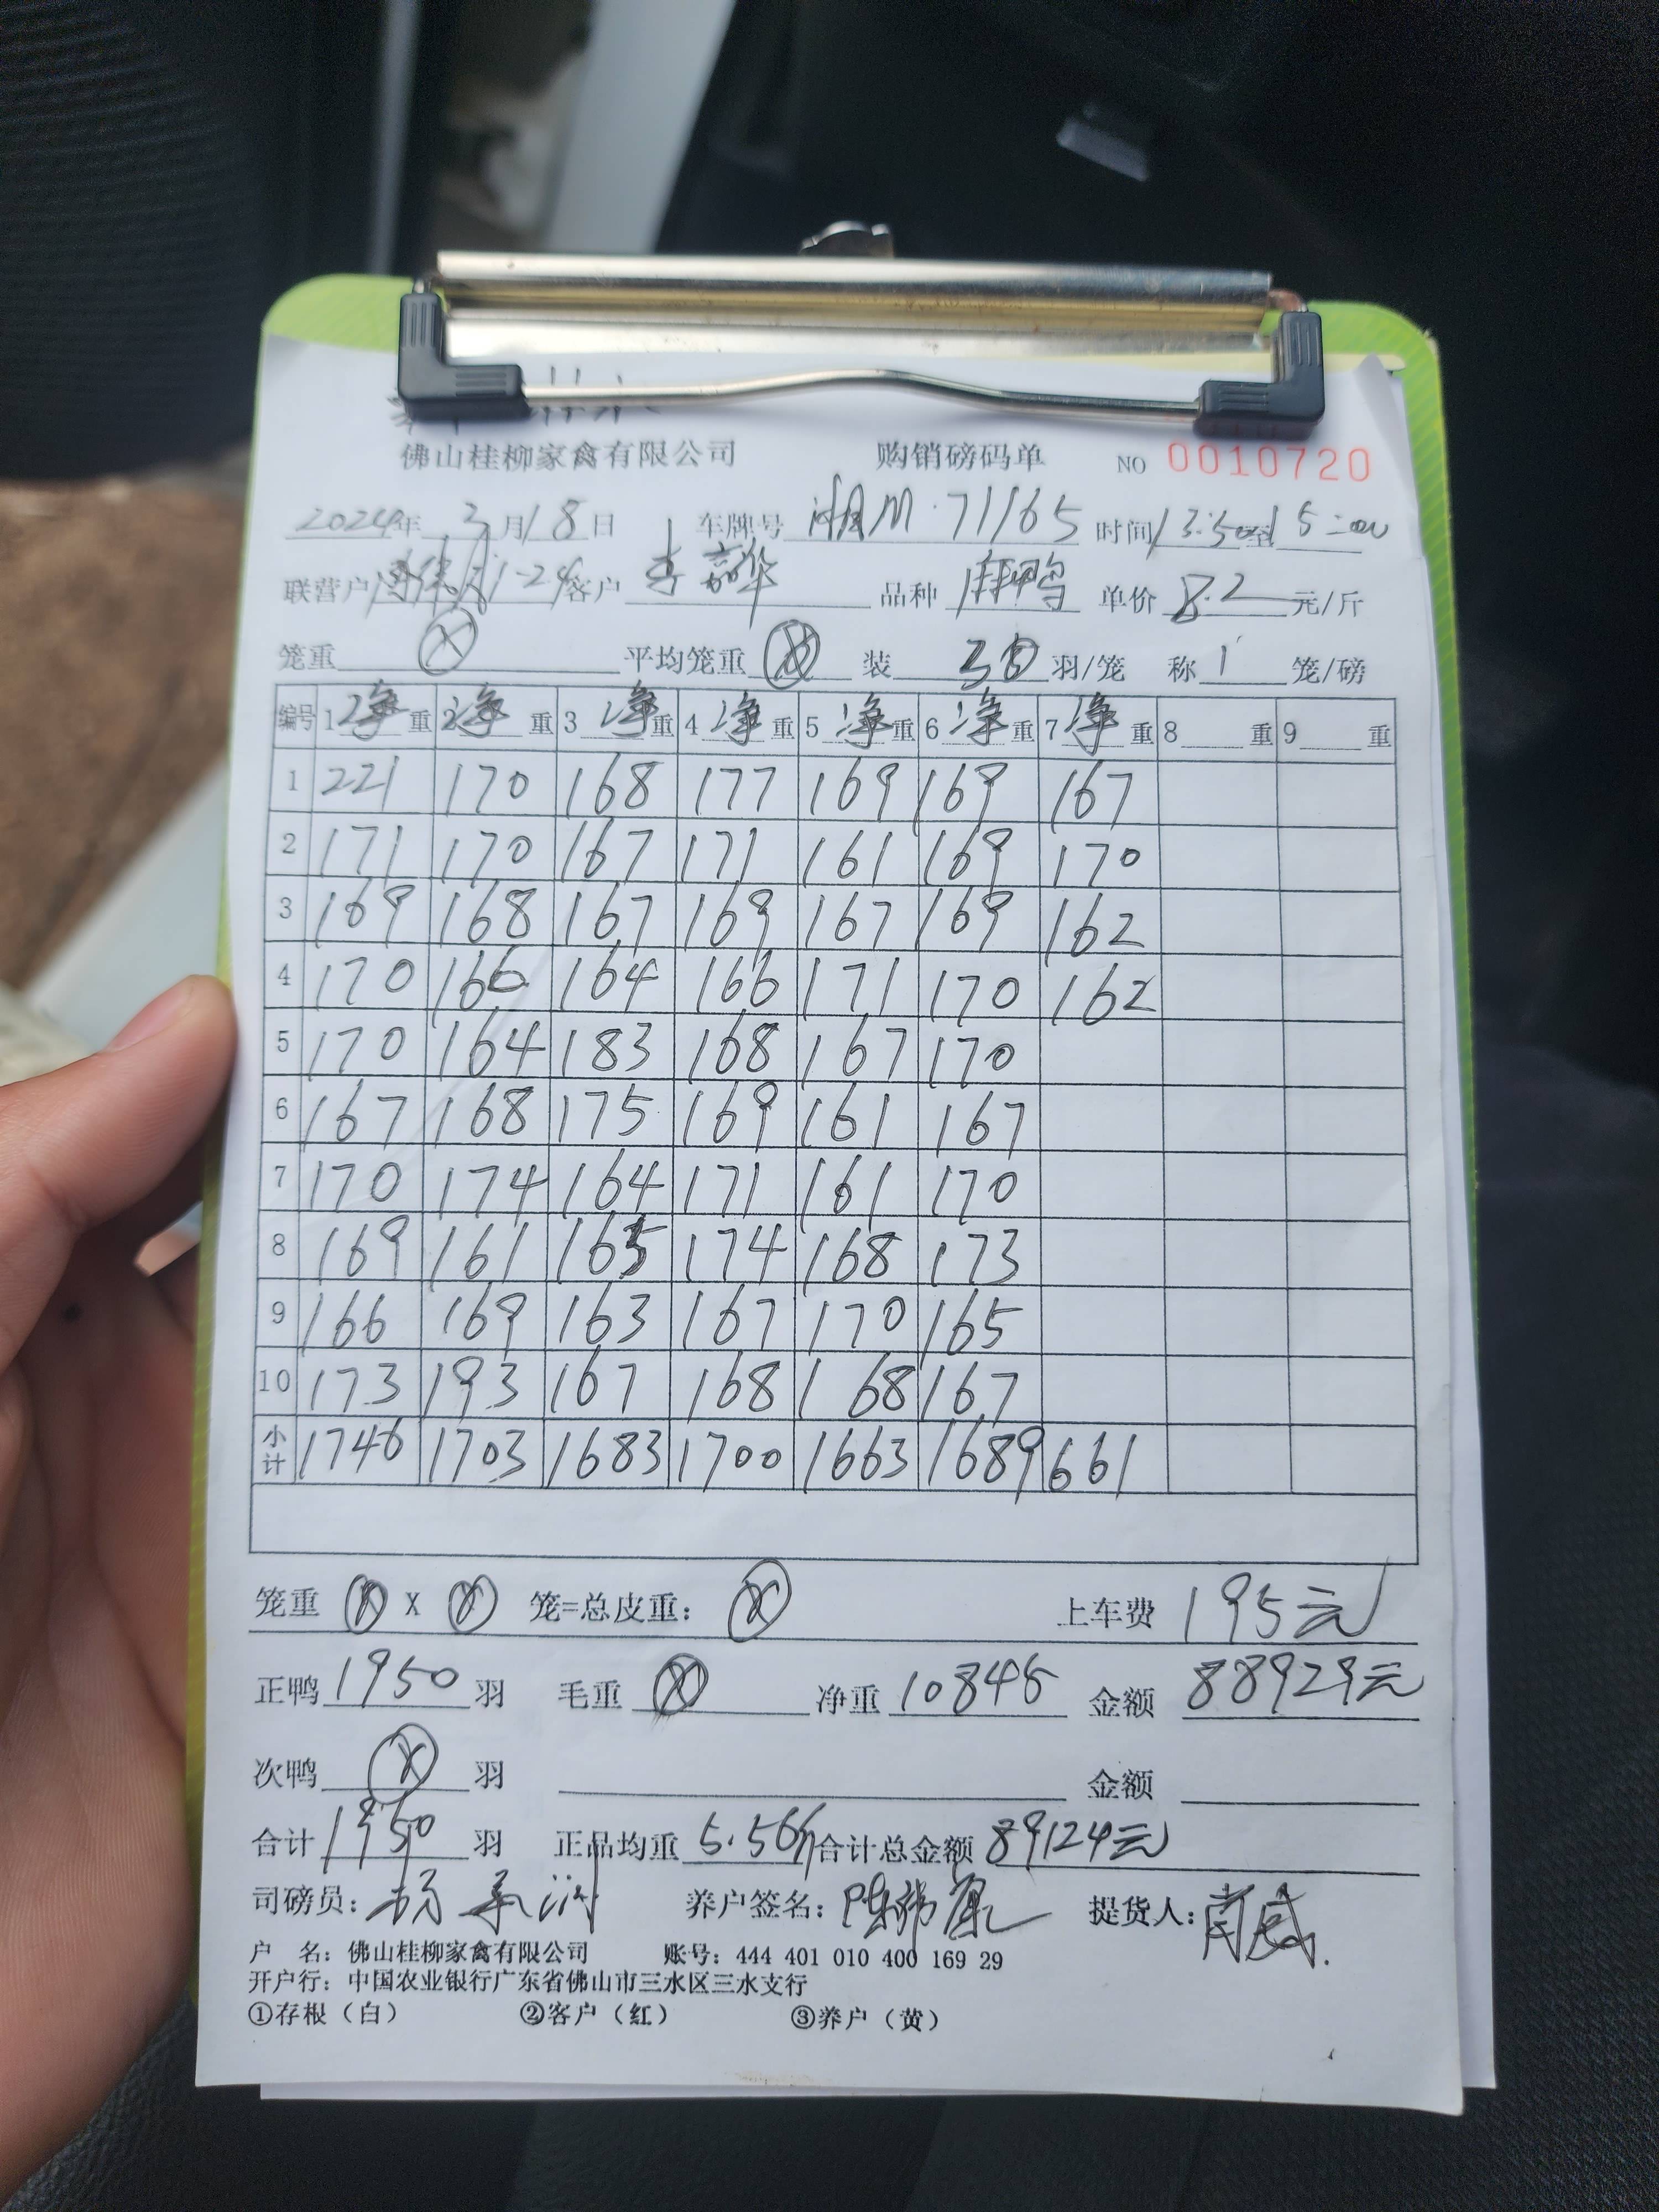 佛山桂柳家禽有限公司 购销磅码单 NO 0010720
2024年 3月18日 车牌号 湘M·71165 时间13:50至15:00
联营户 1-24 客户 李嘉华 品种 麻鸭 单价 8.2 元/斤
笼重 ⓧ 平均笼重 ⓧ 装 30 羽/笼 称 1 笼/磅
编号 1 净 重 2 净 重 3 净 重 4 净 重 5 净 重 6 净 重 7 净 重 8 重 9 重
1 221 170 168 177 169 169 167
2 171 170 167 171 161 169 170
3 169 168 167 169 167 169 162
4 170 166 164 166 171 170 162
5 170 164 183 168 167 170
6 167 168 175 169 161 167
7 170 174 164 171 161 170
8 169 161 165 174 168 173
9 166 169 163 167 170 165
10 173 193 167 168 168 167
小计 1746 1703 1683 1700 1663 1689 661
笼重 ⓧ X ⓧ 笼=总皮重: ⓧ 上车费 195元
正鸭 1950 羽 毛重 ⓧ 净重 10845 金额 88929元
次鸭 ⓧ 羽 金额
合计 1950 羽 正品均重 5.56斤 合计总金额 89124元
司磅员: 杨 养户签名: 陈 提货人:
户 名: 佛山桂柳家禽有限公司 账号: 444 401 010 400 169 29
开户行: 中国农业银行广东省佛山市三水区三水支行
①存根(白) ②客户(红) ③养户(黄)